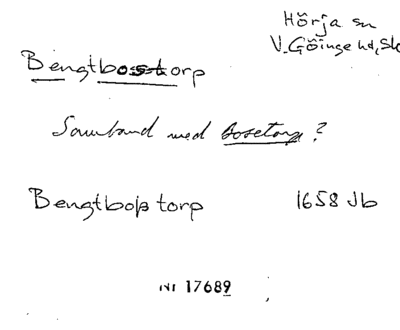 Hörja sn
V. Göinge hd, Sk
Bengtbostorp
Samband med Bosetorp?
Bengtboþ torp 1658 Jb
Nr 17689